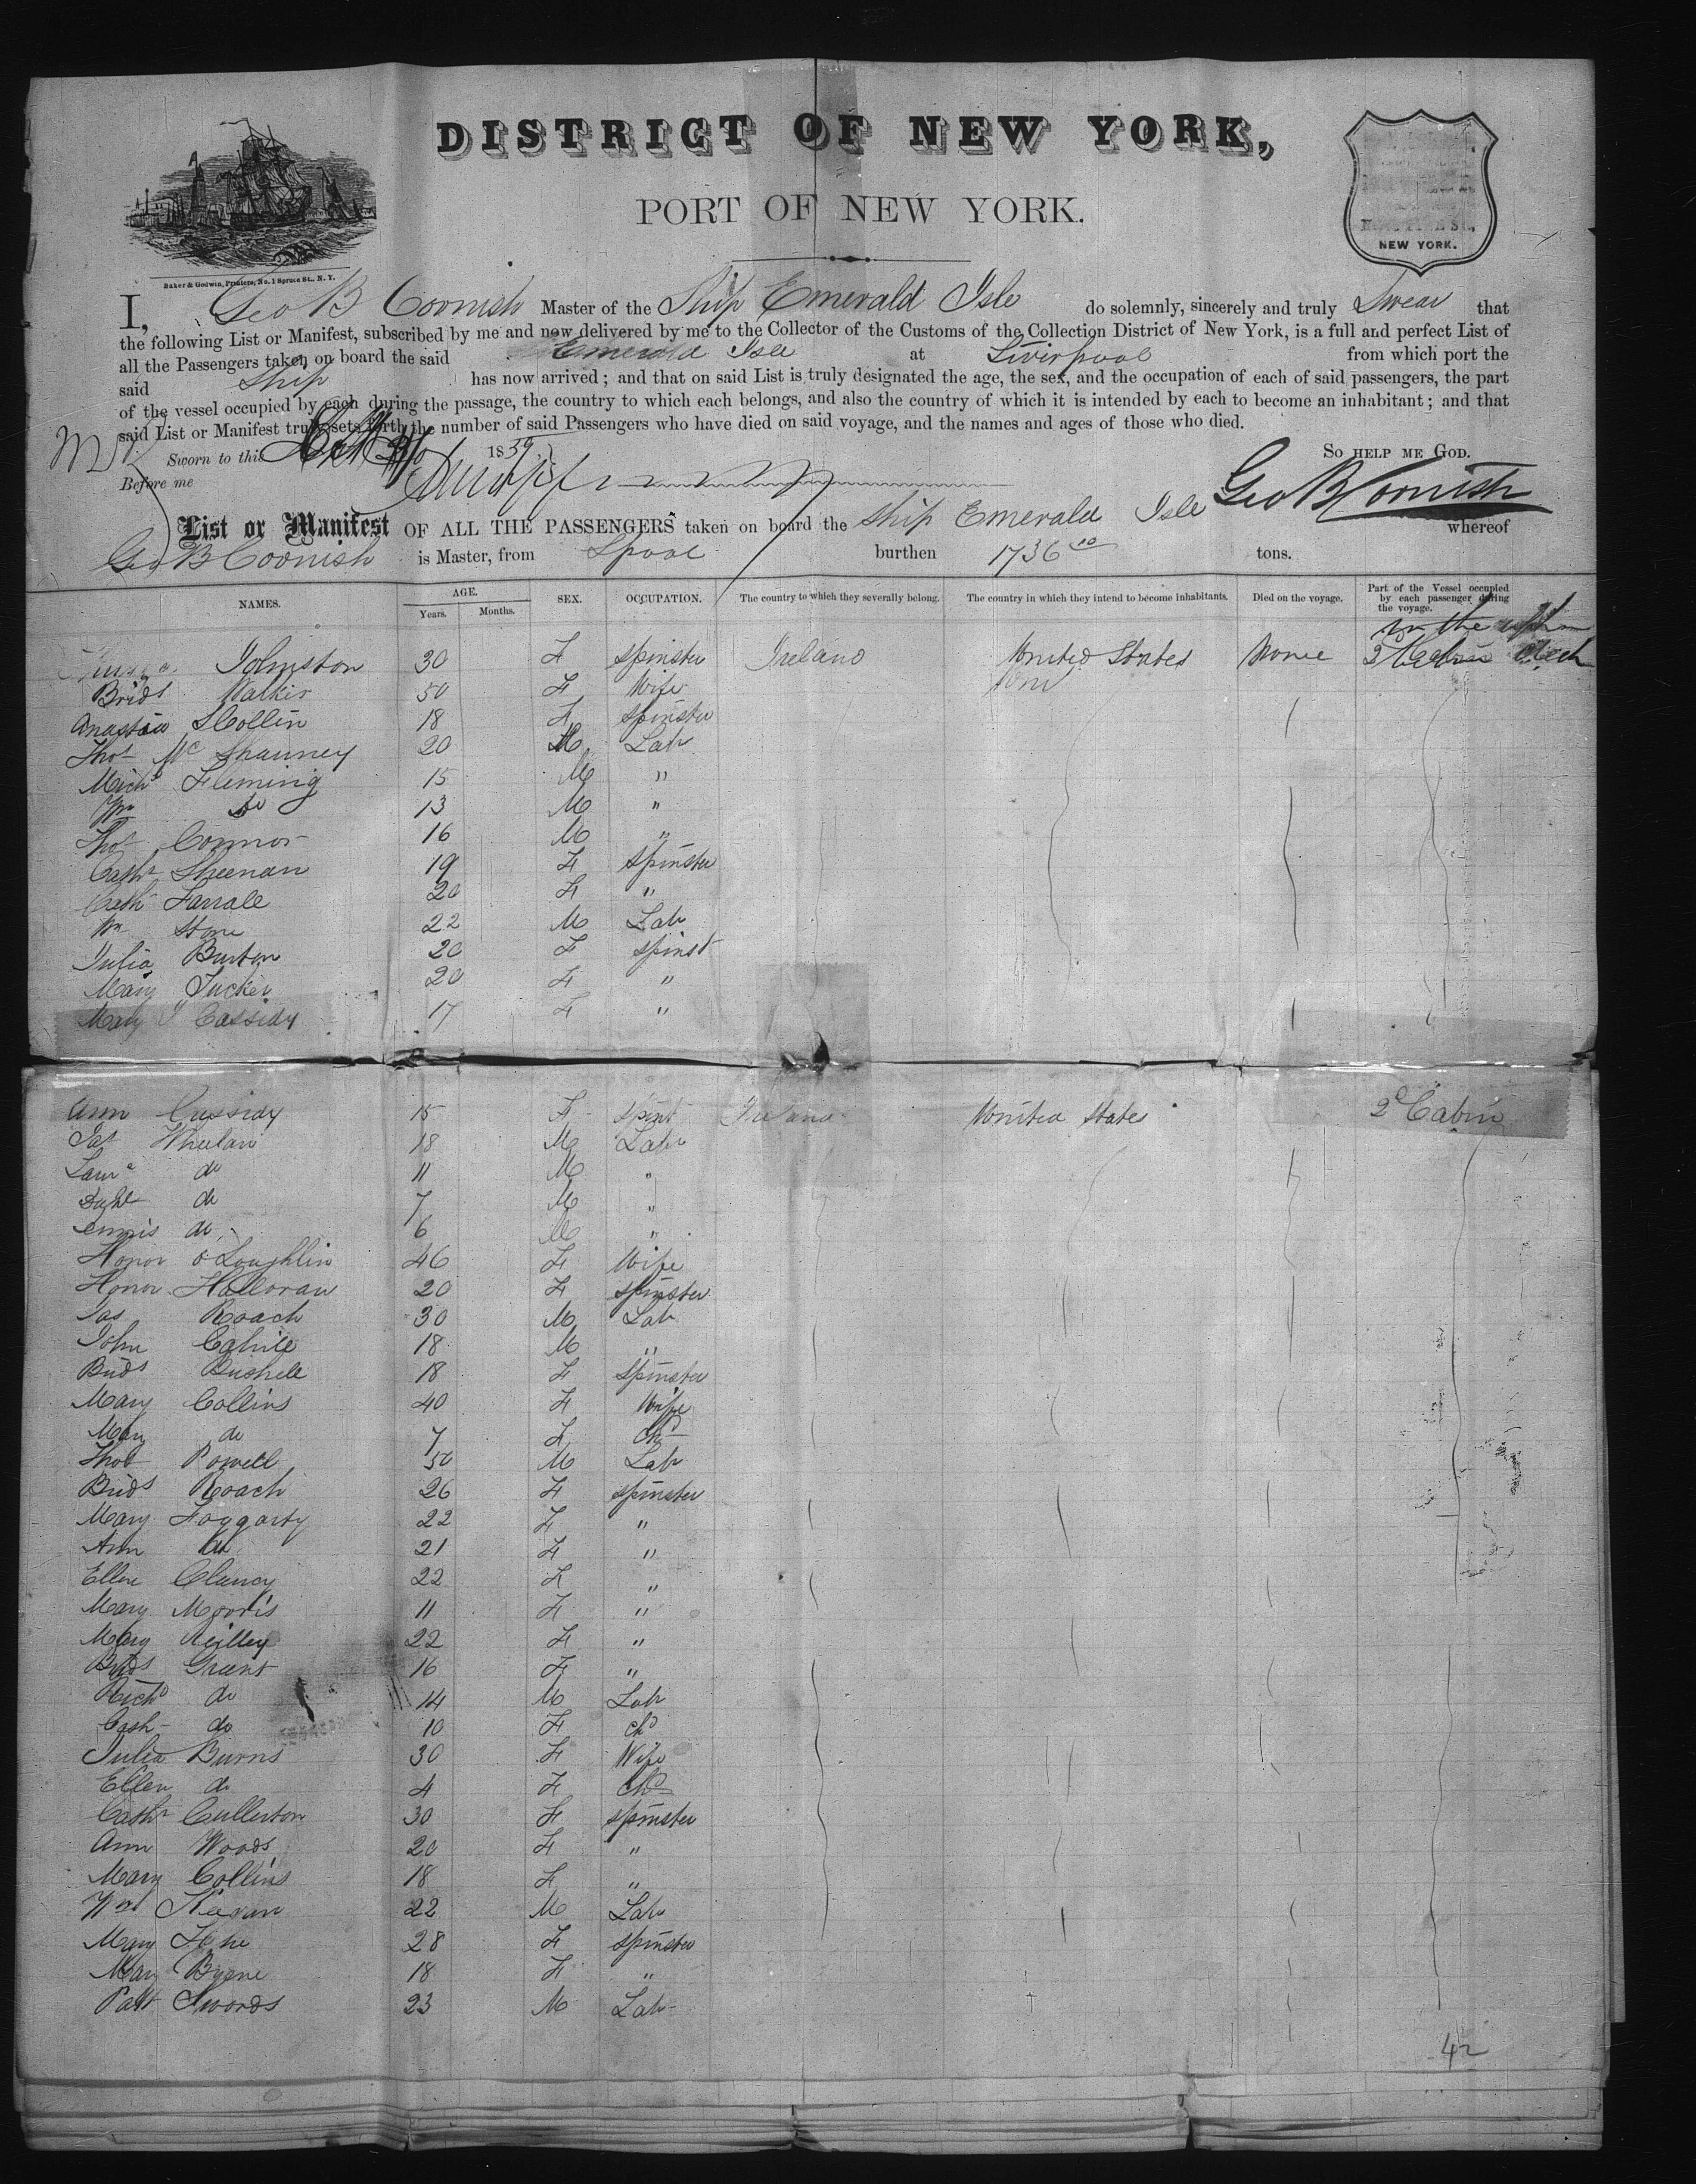 DISTRICT OF NEW YORK,
PORT OF NEW YORK.
NEW YORK.
Baker & Godwin, Printers, No. 1 Spruce St., N. Y.
I, Geo B Cornish Master of the Ship Emerald Isle do solemnly, sincerely and truly Swear that
the following List or Manifest, subscribed by me and now delivered by me to the Collector of the Customs of the Collection District of New York, is a full and perfect List of
all the Passengers taken on board the said Emerald Isle at Liverpool from which port the
said Ship has now arrived; and that on said List is truly designated the age, the sex, and the occupation of each of said passengers, the part
of the vessel occupied by each during the passage, the country to which each belongs, and also the country of which it is intended by each to become an inhabitant; and that
said List or Manifest truly sets forth the number of said Passengers who have died on said voyage, and the names and ages of those who died.
Sworn to this 1859. So help me God.
Before me Geo B Cornish
List or Manifest OF ALL THE PASSENGERS taken on board the ship Emerald Isle whereof
Geo B Cornish is Master, from Lpool burthen 1736 10 tons.
NAMES. AGE. Years. Months. SEX. OCCUPATION. The country to which they severally belong. The country in which they intend to become inhabitants. Died on the voyage. Part of the Vessel occupied by each passenger during the voyage.
Johnston 30 F Spinster Ireland United States None 2 Cabin
Bridt Walker 50 F Wife
Anastia Scollin 18 F Spinster
Thos Mc Shauney 20 M Lab
Michl Fleming 15 M "
Wm do 13 M "
Thos Connor 16 M "
Cathe Sheenan 19 F Spinster
Cath Farrale 20 F "
Wm Stone 22 M Lab
Julia Burton 20 F Spinst
Mary Tucker 20 F "
Mary Cassidy 17 F "
Ann Cassidy 15 F Spint Ireland United States 2d Cabin
Pat Wheelan 18 M Labr
Lawe do 11 M "
do 7 M "
ennis do 6 M "
Honor o Loughlin 46 F Wife
Honor Halloran 20 F Spinster
Jas Roach 30 M Lab
John Cahill 18 M "
Bridt Bushell 18 F Spinster
Mary Collins 40 F Wife
Mary do 7 F Chd
Thos Powell 50 M Lab
Bridt Roach 26 F Spinster
Mary Foggarty 22 F "
Ann do 21 F "
Ellen Clancy 22 F "
Mary Morris 11 F "
Mary Reilley 22 F "
Bridt Grant 16 F "
Richd do 14 M Lab
Cath do 10 F Chd
Julia Burns 30 F Wife
Ellen do 4 F Chd
Cathe Cullerton 30 F Spinster
Ann Woods 20 F "
Mary Collins 18 F "
Wm Keevan 22 M Lab
Mary 28 F Spinster
Mary Byrne 18 F "
Patt Swords 23 M Lab
42